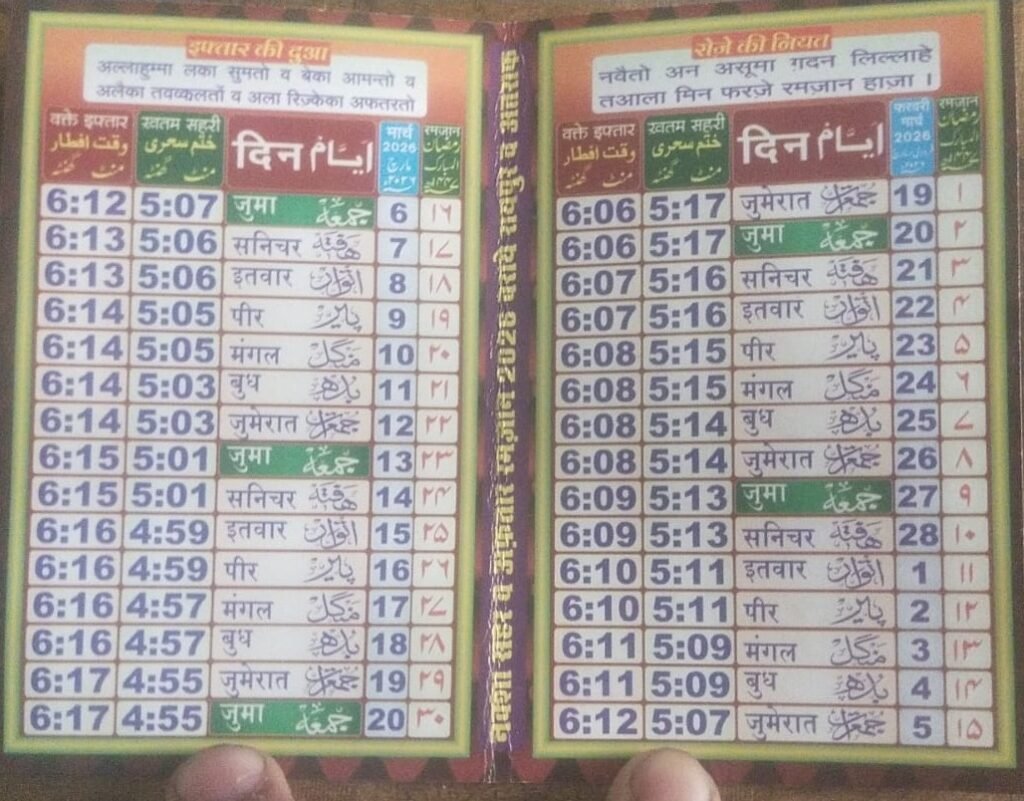 इफ्तार की दुआ
अल्लाहुम्मा लका सुमतो व बेका आमनतो व
अलैका तवक्कलतो व अला रिज़्केका अफतरतो
वक्ते इफ्तार खतम सहरी दिन ایّام मार्च रमज़ान
وقت افطار ختم سحری 2026 رمضان
منٹ گھنٹہ منٹ گھنٹہ مارچ المبارک
6:12 5:07 जुमा جمعہ 6 ۱۶
6:13 5:06 सनिचर ہفتہ 7 ۱۷
6:13 5:06 इतवार اتوار 8 ۱۸
6:14 5:05 पीर پیر 9 ۱۹
6:14 5:05 मंगल منگل 10 ۲۰
6:14 5:03 बुध بدھ 11 ۲۱
6:14 5:03 जुमेरात جمعرات 12 ۲۲
6:15 5:01 जुमा جمعہ 13 ۲۳
6:15 5:01 सनिचर ہفتہ 14 ۲۴
6:16 4:59 इतवार اتوار 15 ۲۵
6:16 4:59 पीर پیر 16 ۲۶
6:16 4:57 मंगल منگل 17 ۲۷
6:16 4:57 बुध بدھ 18 ۲۸
6:17 4:55 जुमेरात جمعرات 19 ۲۹
6:17 4:55 जुमा جمعہ 20 ۳۰
नक्शा सहर व अफ़तार रमज़ान 2026 बराये रायपुर व अतराफ़
रोजे की नियत
नवैतो अन असूमा ग़दन लिल्लाहे
तआला मिन फरज़े रमज़ान हाज़ा ।
वक्ते इफ्तार खतम सहरी दिन ایّام फरवरी रमज़ान
وقت افطار ختم سحری मार्च رمضان
منٹ گھنٹہ منٹ گھنٹہ 2026 المبارک
6:06 5:17 जुमेरात جمعرات 19 ۱
6:06 5:17 जुमा جمعہ 20 ۲
6:07 5:16 सनिचर ہفتہ 21 ۳
6:07 5:16 इतवार اتوار 22 ۴
6:08 5:15 पीर پیر 23 ۵
6:08 5:15 मंगल منگل 24 ۶
6:08 5:14 बुध بدھ 25 ۷
6:08 5:14 जुमेरात جمعرات 26 ۸
6:09 5:13 जुमा جمعہ 27 ۹
6:09 5:13 सनिचर ہفتہ 28 ۱۰
6:10 5:11 इतवार اتوار 1 ۱۱
6:10 5:11 पीर پیر 2 ۱۲
6:11 5:09 मंगल منگل 3 ۱۳
6:11 5:09 बुध بدھ 4 ۱۴
6:12 5:07 जुमेरात جمعرات 5 ۱۵